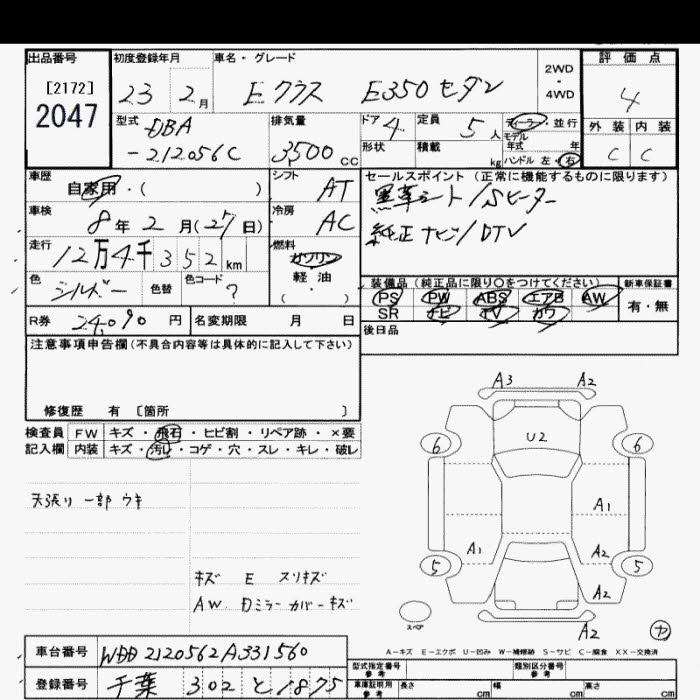 出品番号
[2172]
2047
初度登録年月
23 2月
車名・グレード
Eクラス E350セダン
2WD
・
4WD
評価点
4
型式
DBA
-212056C
排気量
3,500 CC
ドア 4
定員 5人
形状
積載 kg
ディーラー・並行
モデル
年式 年
ハンドル 左・右
外装 内装
C C
車歴
自家用・( )
シフト
AT
セールスポイント (正常に機能するものに限ります)
黒革シート/Sヒーター
純正ナビ/DTV
車検
8年2月(27日)
冷房
AC
走行
12万4千352km
燃料
ガソリン
軽油
( ・ )
色
シルバー
色替
色コード
?
装備品 (純正品に限り○をつけてください)
PS PW ABS エアB AW
SR ナビ TV カワ
新車保証書
有・無
R券 24,090円
名変期限 月 日
後日品
注意事項申告欄(不具合内容等は具体的に記入して下さい)
修復歴 有 [箇所 ]
検査員
記入欄
FW キズ・飛石・ヒビ割・リペア跡・×要
内装 キズ・汚れ・コゲ・穴・スレ・キレ・破レ
天張り一部ウキ
キズ E スリキズ
AW 日ミラーカバーキズ
A3 A2
U2
6 6
A1
A1 A2
5 5
A2
スペア
A2
ヤ
A-キズ E-エクボ U-凹み W-補修跡 S-サビ C-腐食 XX-交換済
車台番号 WDD2120562A331560
登録番号 千葉 302 と 1875
型式指定番号
参考
類別区分番号
参考
車庫証明用
参考
長さ cm 幅 cm 高さ cm